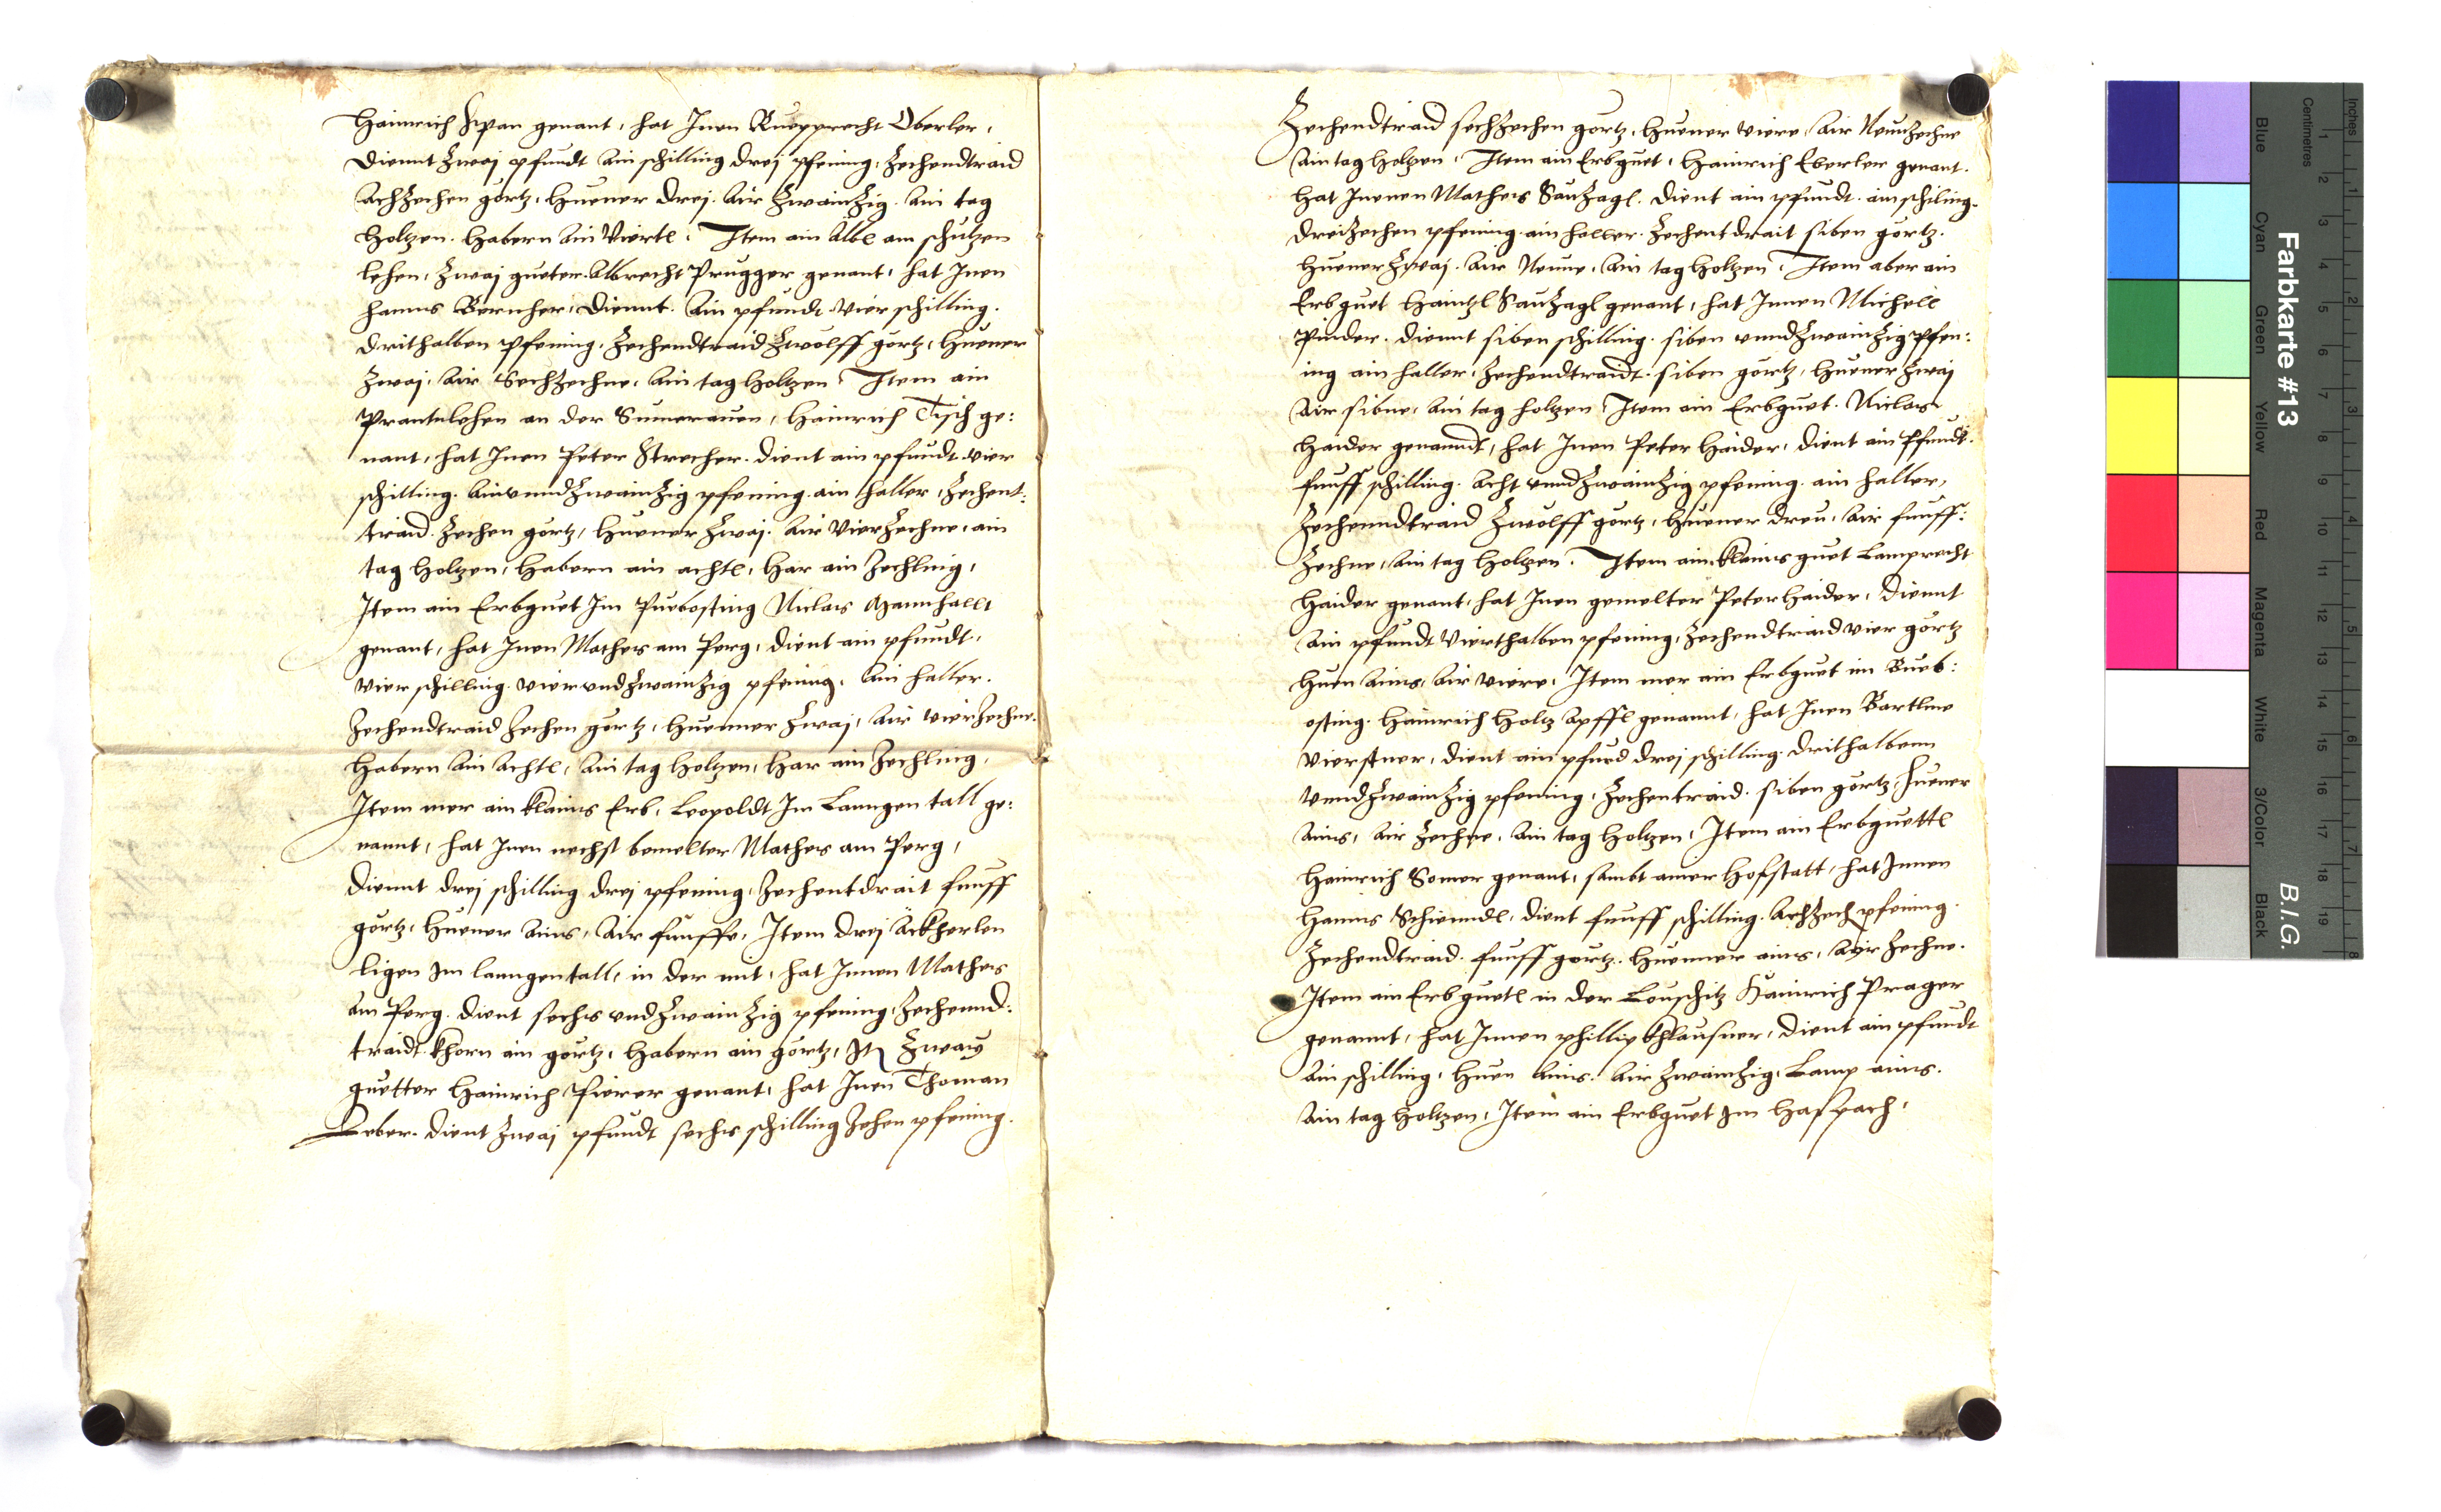 Hainrich Span genant, hat Inen Ruepprecht Oberler,
diennt zwaj pfundt ain schilling drej pfening, Zechendtraid
achzechen görtz, Huener drej. Air zwainzig. Ain tag
holtzen. Habern ain viertl. Item ain Albl am schutzen
lehen, zwaj gueter. Albrecht Prugger genant, hat Inen
Hanns Bernher, diennt. Ain pfundt vier schilling.
drithalben pfening, Zechendtraid zwölff görtz, Huener
zwaj, Air Sechzechne, ain tag holtzen. Item ain
Prantnlehen an der Sumerauen, Hainrich Tisch ge:
nant, hat Inen Peter Strecher. dient ain pfundt vier
schilling. Ainvnndzwainzig pfening ain haller, Zechent:
traid. Zechen görtz, Huener zwaj. Air Vierzechne, ain
tag holtzen, Habern ain achtl, Har ain Zechling,
Item ain Erbguet Im Puebosting Niclas Mannhallt
genant, hat Inen Mathes am Perg, dient ain pfundt,
vier schilling. vier vndzwainzig pfening. Ain haller.
Zechendtraid Zechen görtz, Huenner zwaj, Air vierzechne.
Habern ain achtl, ain tag holtzen, Har ain Zechling,
Item mer ain klains Erb, Leopoldt Im Lanngen tall ge:
nannt, hat Inen nechst bemelter Mathes am Perg,
diennt drej schilling drej pfening, Zechentdrait funff
görtz, Huener ains, Air funffe, Item drej Äckherlen
ligen Im lanngentall, in der mit, hat Innen Mathes
am Perg. dient sechs vndzwainzig pfening, Zechennd:
traidt khorn ain görtz, Habern ain görtz, It. zway
guetter Hainrich Fierer genant, hat Inen Thoman
Leber. dient zwaj pfundt sechs schilling Zehen pfening.
Zechendtraid sechzechen görtz, Huener viere, Air Neunzechne
Ain tag holtzen. Item ain Erbguet, Hainrich Eberler genant.
Hat Innen Mathes Sauzagl. dient ain pfundt. ain schiling.
dreizechen pfening. ain haller. Zechentdrait siben görtz.
Huener zwaj. Air Neune, Ain tag holtzen. Item aber ain
Erbguet Haintzl Sauzagl genant, hat Innen Michell
Pinder. diennt siben schilling. siben vnndzwainzig pfen:
ing ain haller, Zechendtraidt. siben görtz, Huener zwaj
Air sibne, Ain tag holtzen. Item ain Erbguet. Niclas
Haider genanndt, hat Inen Peter Haider, dient ain Pfundt.
funff schilling. Acht vnndzwainzig pfening. ain haller,
Zechenndtraid zwölff görtz, Huener dreu, Air funff:
zechne, Ain tag holtzen. Item ain klains guet Lamprecht
Haider genant, hat Inen gemelter Peter Haider, diennt
Ain pfundt vierthalben pfening, Zechendtraid vier görtz
Huen ains, Air viere, Item mer ain Erbguet im Pueb:
osting. Hainrich Holtz Apffl genannt, hat Inen Bartlme
vierstner, dient ain pfund drej schilling. drithalbenn
vnndzwainzig pfening, Zechentraid. siben görtz, Huener
Ains, Air Zechne, Ain tag holtzen, Item ain Erbguettl
Hainrich Somer genant, sambt ainer Hofstatt, hat Innen
Hanns Schienndl, dient funff schilling. Achzech pfening.
Zechendtraid. funff görtz. Huenner ains, Ayr Zechne.
Item ain Erbguetl in der Louschitz Hainrich Prager
genannt, hat Innen phillip khlausner, dient ain pfundt
Ain schilling, Huen Ains. Air zwainzig, Lamp ains.
Ain tag holtzen, Item ain Erbguet Im Haspach,
Farbkarte #13
B.I.G.
Inches
Centimetres
Blue
Cyan
Green
Yellow
Red
Magenta
White
3/Color
Black